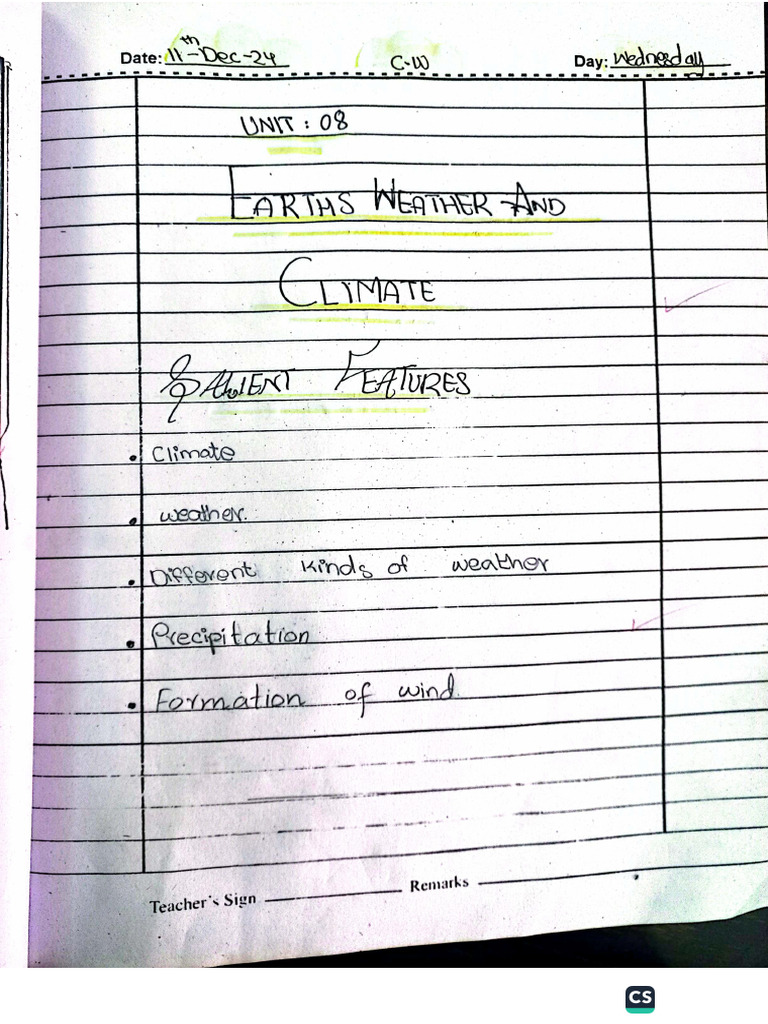 Date: 11th-Dec-24 C.W Day: Wednesday
UNIT : 08
EARTHS WEATHER AND
CLIMATE
SALIENT FEATURES
• Climate
• weather.
• Different kinds of weather
• Precipitation
• Formation of wind.
Teacher's Sign Remarks
CS